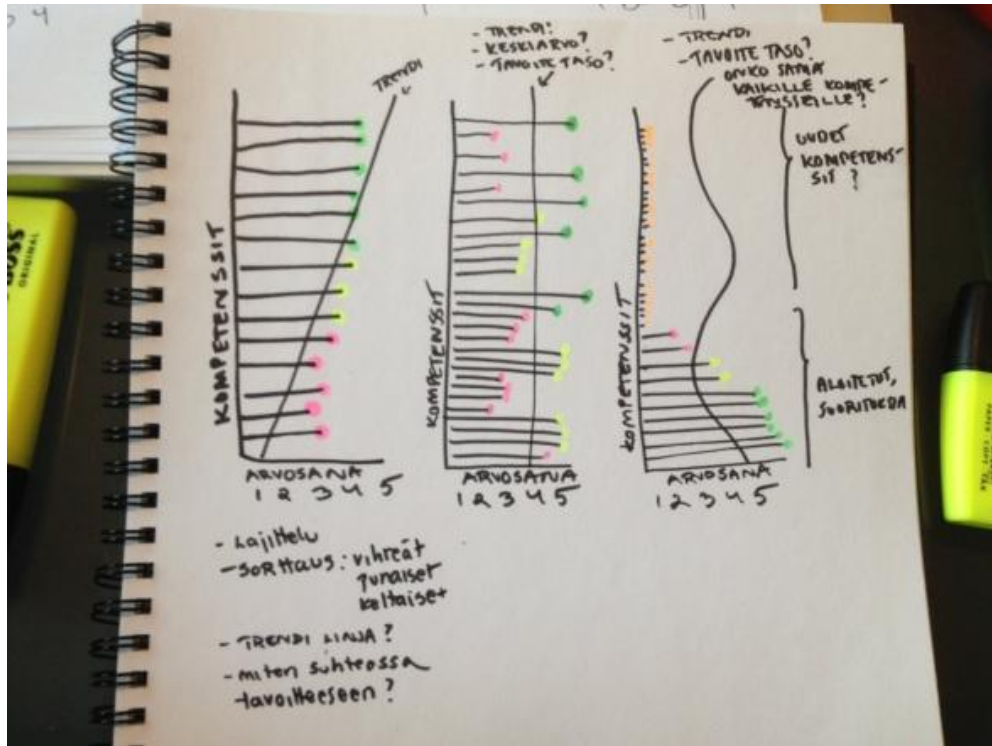 TRENDI
KOMPETENSSIT
ARVOSANA
1 2 3 4 5
- TRENDI?
- KESKIARVO?
- TAVOITE TASO?
KOMPETENSSIT
ARVOSANA
1 2 3 4 5
- TRENDI
- TAVOITE TASO?
ONKO SAMA
KAIKILLE KOMPE-
TENSSEILLE?
UUDET
KOMPETENS-
SIT?
KOMPETENSSIT
ALOITETUT,
ARVOSANA
1 2 3 4 5
- Lajittelu
- SORTTAUS: vihreät
punaiset
keltaiset
- TRENDI LINJA?
- miten suhteessa
tavoitteeseen?
BOSS
ORIGINAL